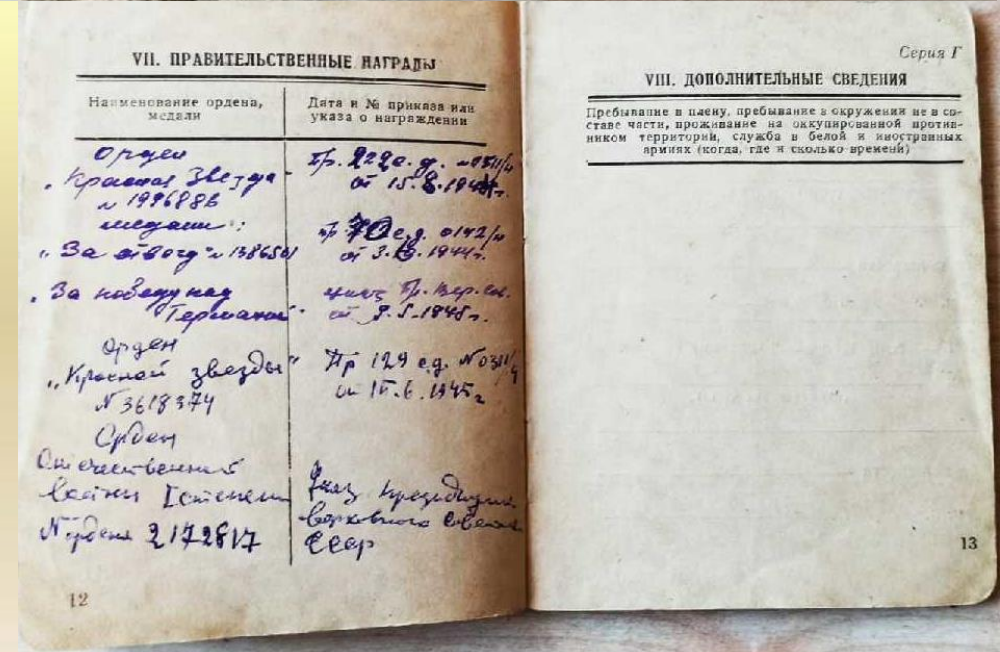 VII. ПРАВИТЕЛЬСТВЕННЫЕ НАГРАДЫ
Наименование ордена,
медали
Дата и № приказа или
указа о награждении
Орден
„Красная Звезда"
медали:
„За отвагу"
от 3. 1944г.
„За победу над
Германией"
от 9.5.1945г.
Орден
„Красной звезды"
N 3618374
Пр 129 с.д.
от 6.1945г
Орден
Отечественной
войны I степени
N ордена 2172817
Указ Президиума
Верховного Совета
СССР
12
Серия Г
VIII. ДОПОЛНИТЕЛЬНЫЕ СВЕДЕНИЯ
Пребывание в плену, пребывание в окружении не в со-
ставе части, проживание на оккупированной против-
ником территории, служба в белой и иностранных
армиях (когда, где и сколько времени)
13